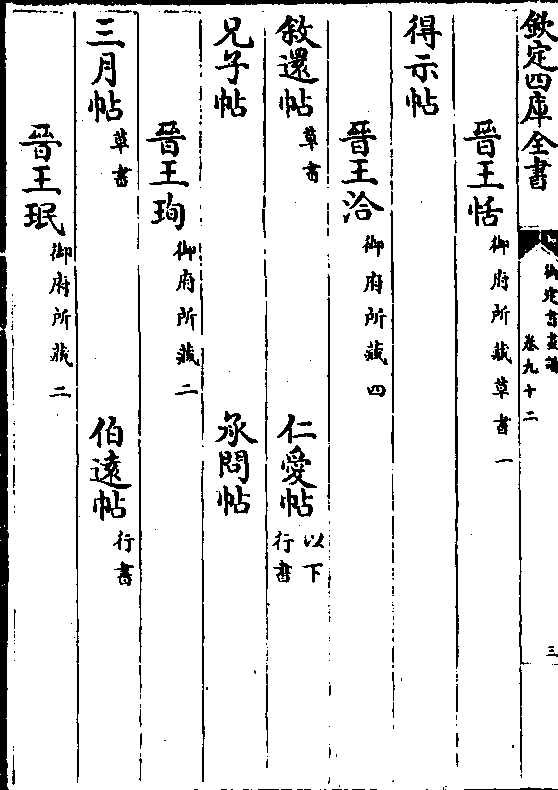 欽定四庫全書
御定書畫譜
卷九十二
三
晉王恬御府所藏草書一
得示帖
晉王洽御府所藏四
敘還帖草書 仁愛帖以下行書
兄子帖 承問帖
晉王珣御府所藏二
三月帖草書 伯遠帖行書
晉王珉御府所藏二